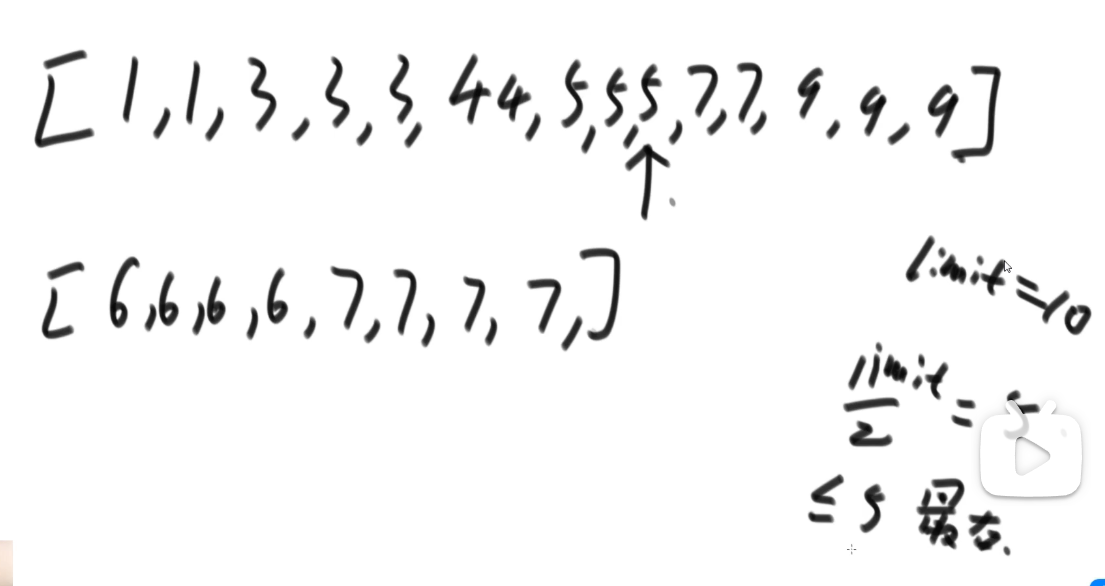 [1,1,3,3,3,44,5,5,5,7,7,9,9,9]
[6,6,6,6,7,7,7,7,]
limit=10
limit/2 = 5
≤5 最右.